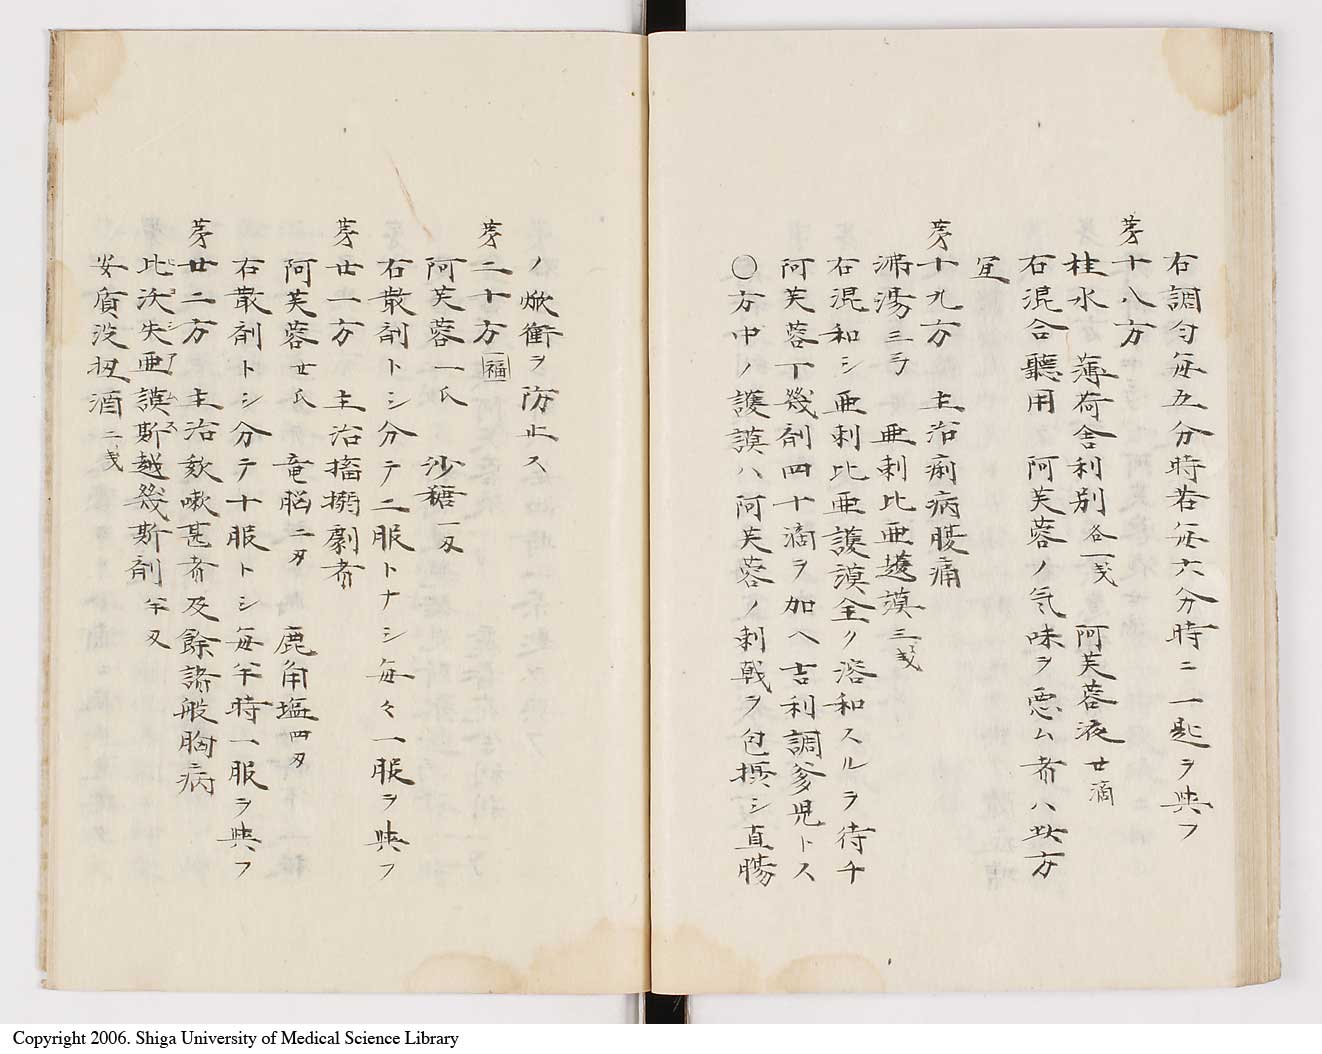 右調匀毎五分時若毎六分時ニ一匙ヲ與フ
㐧十八方
桂水 薄荷舎利別 各一戔 阿芙蓉液 廿滴
右混合聽用阿芙蓉ノ氣味ヲ悪ム者ハ此方
冝
㐧十九方 主治痢病腹痛
沸湯三 亜剌比亜護謨三戔
右混和シ亜剌比亜護謨全ク溶和スルヲ待チ
阿芙蓉丁幾剤四十滴ヲ加ヘ吉利調爹児トス
〇方中ノ護謨ハ阿芙蓉ノ刺戟ヲ包摂シ直腸
ノ焮衝ヲ防止ス
㐧二十方 福
阿芙蓉一氏 沙糖一刄
右散剤トシ分テ二服トナシ毎々一服ヲ與フ
㐧廿一方 主治搐搦劇者
阿芙蓉廿氏 竜脳二刄 鹿角塩四刄
右散剤トシ分テ十服トシ毎半時一服ヲ與フ
㐧廿二方 主治欬嗽甚者及餘諸般胸病
比沃失亜謨斯越幾斯剤半刄
ヒヨシアムス
安質没扭酒二戔
Copyright 2006. Shiga University of Medical Science Library